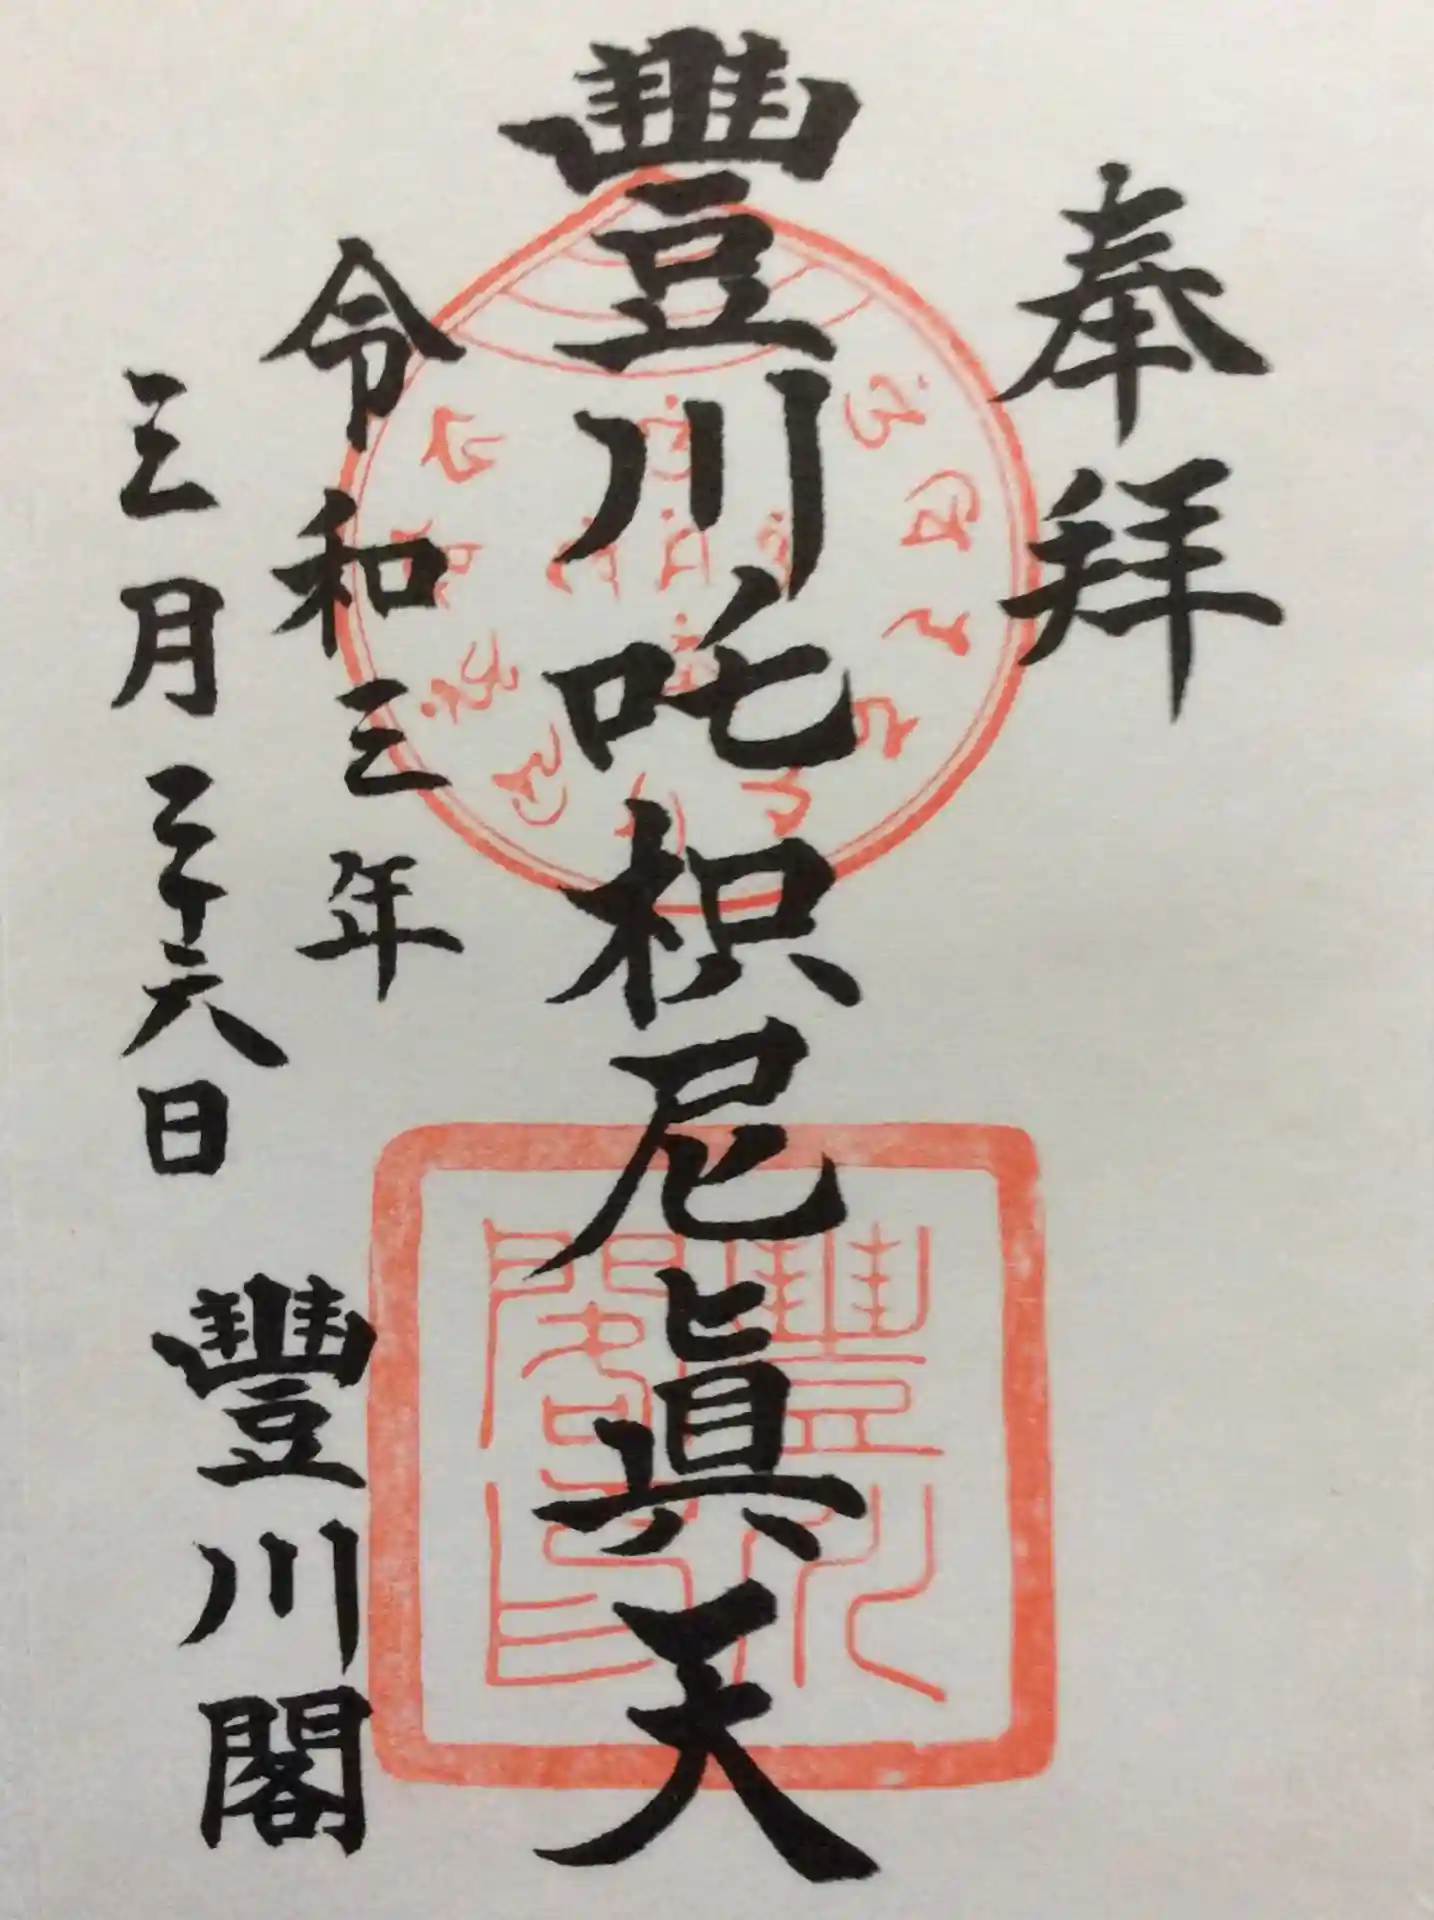 奉拜
豐川吒枳尼眞天
令和三年
三月二十六日
豐川閣
豐川
閣印